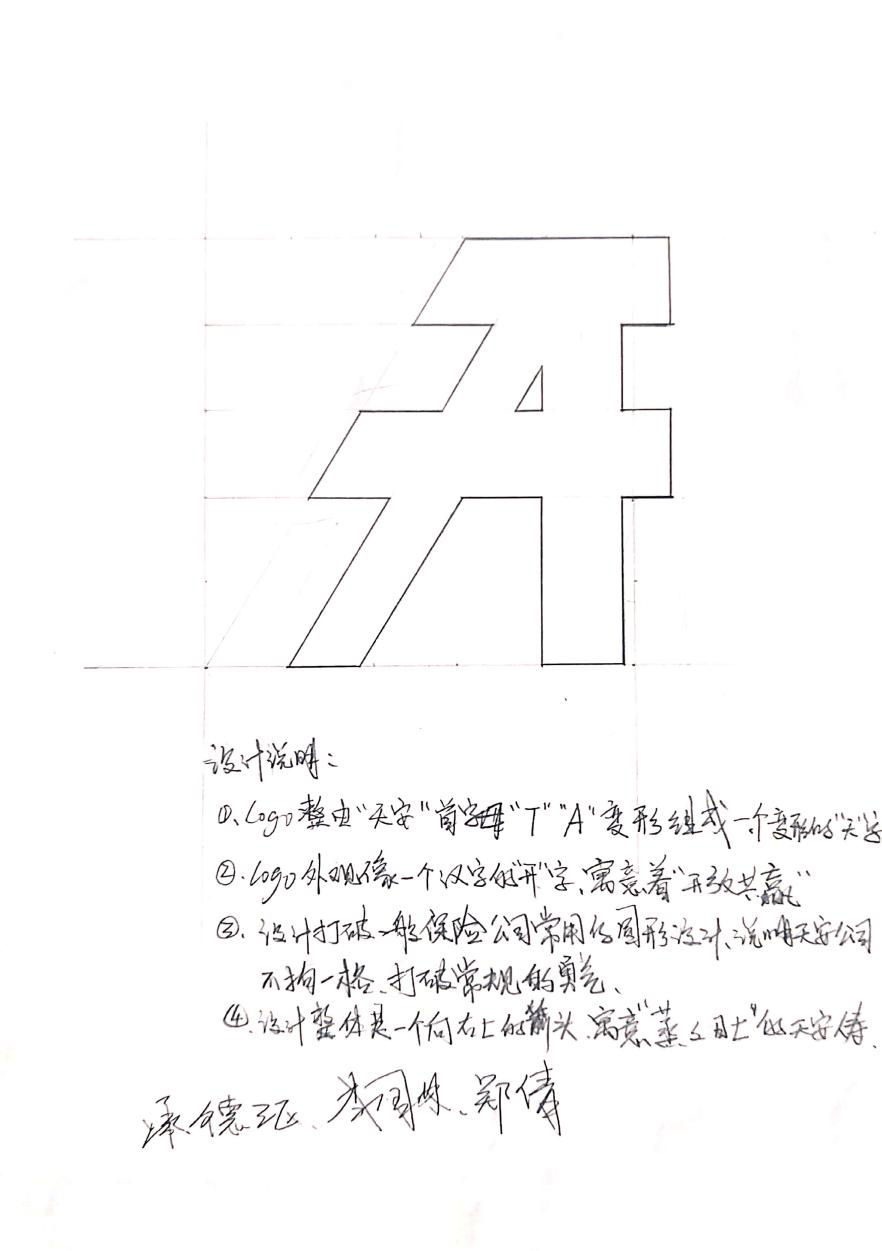 设计说明:
①、Logo整由"天安"首字母"T""A"变形组成一个变形的"天"字
②、logo外观像一个汉字的"开"字、寓意着"开放共赢"
③、设计打破一般保险公司常用的圆形设计、说明天安公司
不拘一格、打破常规的勇气、
④、设计整体是一个向右上的箭头、寓意"蒸蒸日上"的天安
郑倩